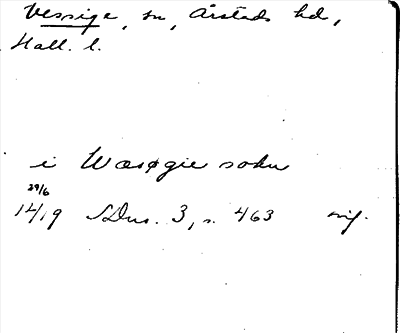 Vessige, sn, Årstads hd,
Hall. l.
i Wæsøgie sokn
29/6
1419 SDns. 3, s. 463